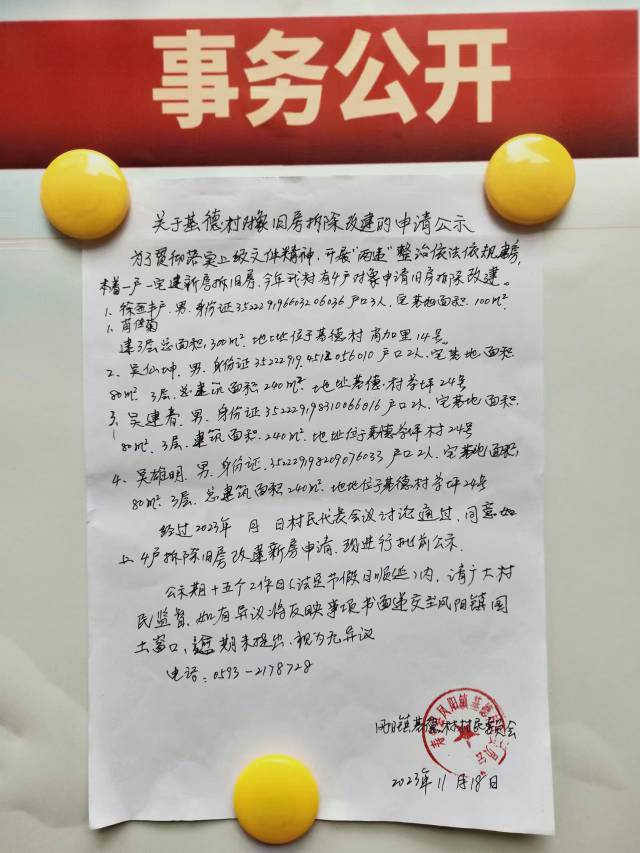 事务公开
关于基德村对象旧房拆除改建的申请公示
为了贯彻落实上级文件精神，开展"两违"整治依法依规建房，
本着一户一宅建新房拆旧房，今年我村有4户对象申请旧房拆除改建。
1、徐金丰户，男，身份证352229196603206036户口3人，宅基地面积，100m²，
1、肖
建3层总面积，300m²，地址位于基德村肖加里14号。
2、吴仙坤，男，身份证35222919451056010户口2人，宅基地面积
80m²，3层，总建筑面积240m²，地址基德村岑坪24号
3、吴建春，男，身份证352229198310066016户口2人，宅基地面积，
80m²，3层，建筑面积，240m²，地址位于基德岑坪村24号
4、吴雄明，男，身份证，352229198209076033户口2人，宅基地面积，
80m²，3层，总建筑面积240m²，地址位于基德村岑坪24号
经过2023年 月 日村民代表会议讨论通过，同意如
上4户拆除旧房改建新房申请，现进行批前公示。
公示期十五个工作日（法定节假日顺延）内，请广大村
民监督，如有异议将反映事项书面递交至凤阳镇国
土窗口，逾期未提出，视为无异议
电话：0593-2178728
凤阳镇基德村村民委员会
2023年11月18日